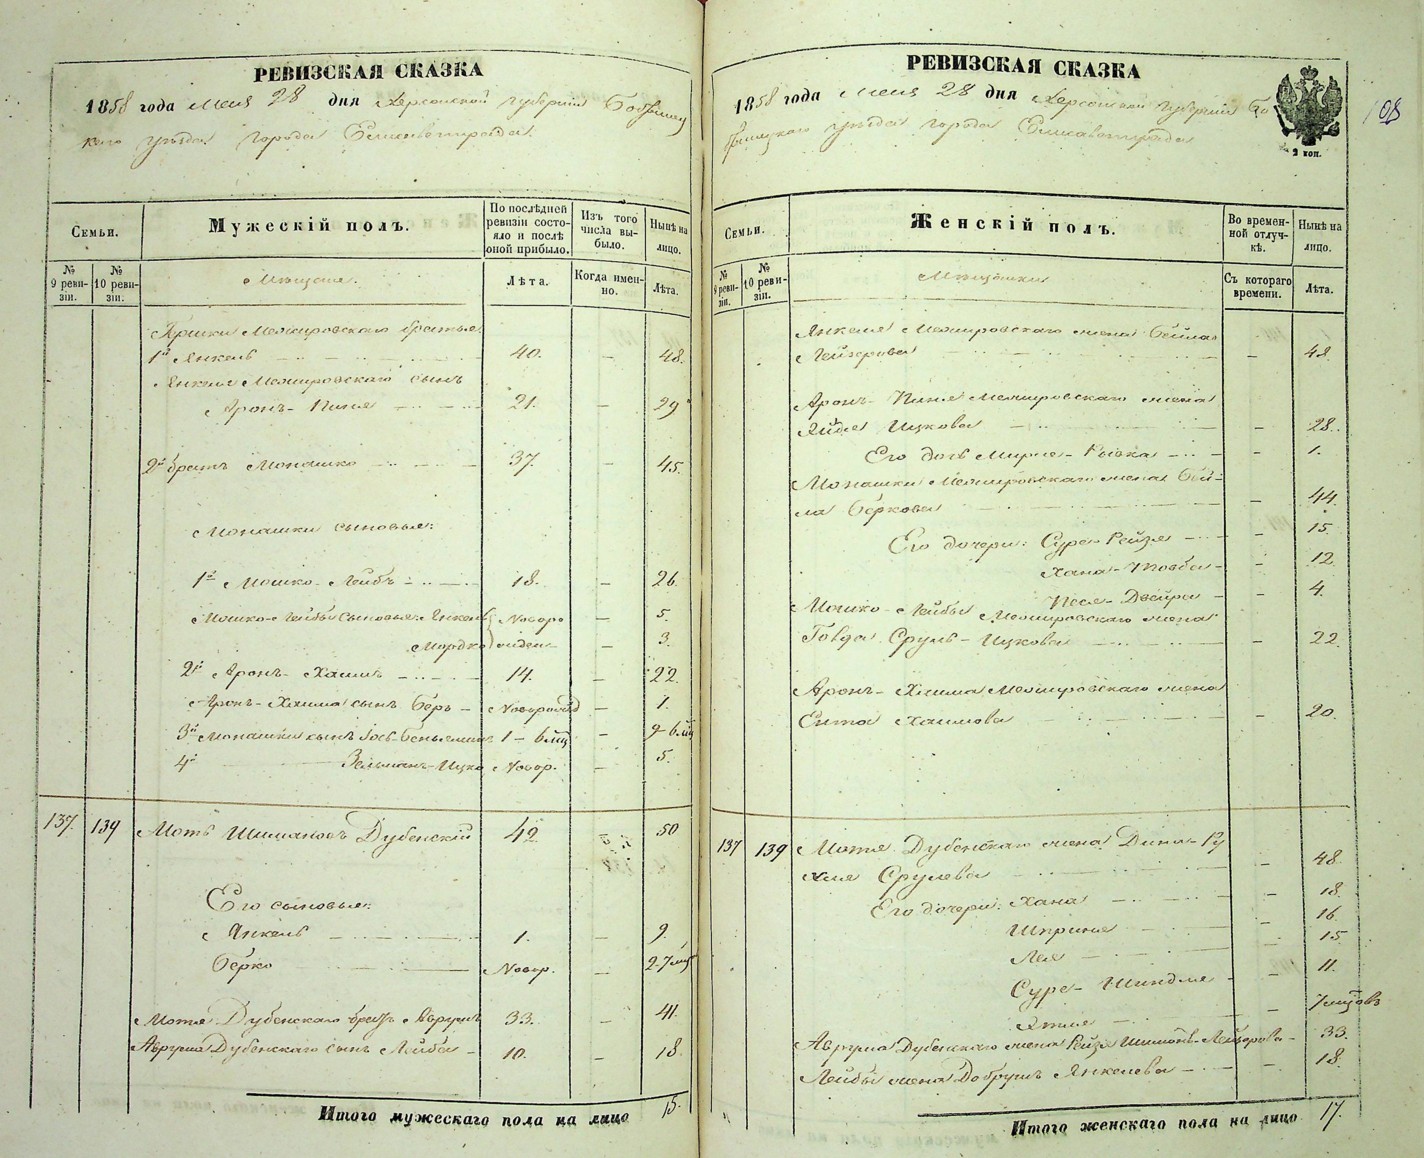 РЕВИЗСКАЯ СКАЗКА
1858 года Мая 28 дня Херсонской губернии Бобринец
каго уезда города Елисаветграда
Семьи.
Мужескій полъ.
По послѣдней ревизіи состояло и послѣ оной прибыло.
Изъ того числа выбыло.
Нынѣ на лицо.
№ 9 ревизіи.
№ 10 ревизіи.
Мѣщане.
Лѣта.
Когда именно.
Лѣта.
Межировскаго братья
1й Янкель 40. – 48.
Янкеля Межировскаго сынъ
Аронъ-Пиня 21. – 29
2й братъ Монашко 37. – 45.
Монашки сыновья:
1й Мошко-Лейбъ 18. – 26.
Мошко-Лейбы сыновья: Янкель Новоро – 5.
Мордко жден – 3.
2й Аронъ-Хаимъ 14. – 22.
Аронъ-Хаима сынъ Беръ – Новорожд – 1.
3й Монашки сынъ Іосъ-Беньяминъ 1 – 6 мц – 9-6 мц
4й Зельманъ-Ицко Новор. – 5.
137. 139 Мотя Шимановъ Дубенскій 42 50
Его сыновья:
Янкель 1. – 9.
Берко Новор. – 2-7 мц
Мотя Дубенскаго братъ Аврумъ 33. – 41.
Аврума Дубенскаго сынъ Лейба – 10. – 18.
Итого мужескаго пола на лицо 15.
РЕВИЗСКАЯ СКАЗКА
1858 года Мая 28 дня Херсонской губерніи Бо
бринецкаго уезда города Елисаветграда
2 коп.
108
Семьи.
Женскій полъ.
Во временной отлучкѣ.
Нынѣ на лицо.
№ 9 ревизіи.
№ 10 ревизіи.
Мѣщанки
Съ котораго времени.
Лѣта.
Янкеля Межировскаго жена Бейла
Лейзерова – 48.
Аронъ-Пиня Межировскаго жена
Ицкова – 28.
Его дочь Мирля-Ривка – 1.
Монашки Межировскаго жена Бей-
ла Беркова – 44.
Его дочери: Сура-Рейзя – 15.
Хана-Товба – 12.
Песя-Двейра – 4.
Мошко-Лейбы Межировскаго жена
Голда Сруль-Ицкова – 22.
Аронъ-Хаима Межировскаго жена
Ента Хаимова – 20.
137 139 Мотя Дубенскаго жена Дина-Ру
хля Срулева – 48.
Его дочери: Хана – 18.
Шпринца – 16.
Лея – 15.
Сура-Шиндля – 11.
7 мцовъ
Аврума Дубенскаго жена Рейзя Шимонъ-Лейзерова – 33.
Лейбы жена Добрушъ Янкелева – 18.
Итого женскаго пола на лицо 17.